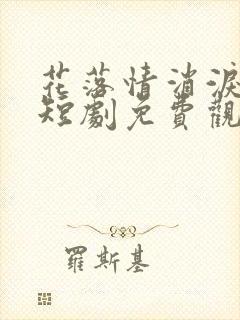 花落情消淚
短劇免費觀
羅斯基